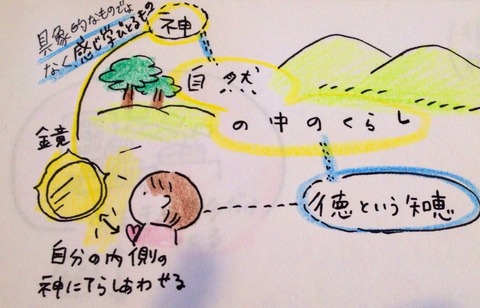 具象的なものでは
なく感じ学びとるもの
神
自然
の中のくらし
鏡
徳という知恵
自分の内側の
神にてらしあわせる